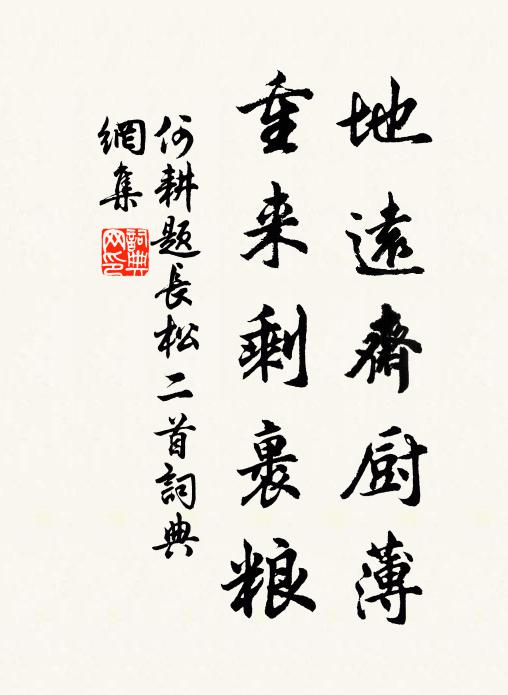 地遠齋厨薄
重来剩裹粮
何耕題長松二首詞典
網集
詞典網印